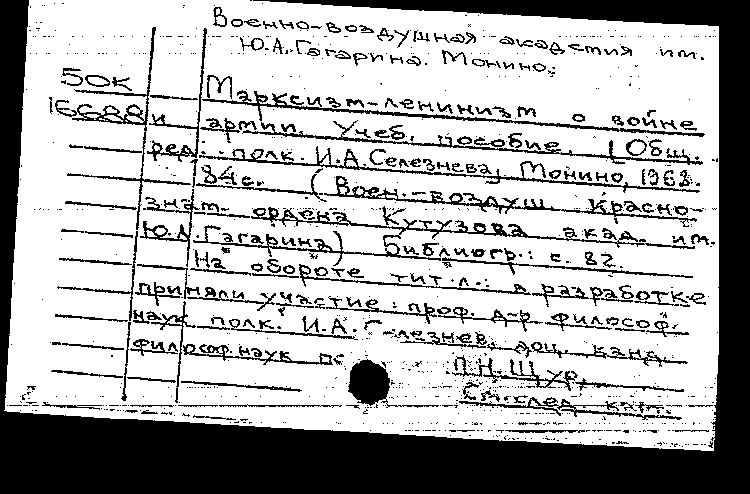 Военно-воздушная академия им.
Ю.А.Гагарина. Монино.
50К Марксизм-ленинизм о войне
16688 и армии. Учеб. пособие. [Общ.
ред.: полк. И.А.Селезнева] Монино, 1968.
84с. (Воен.-воздуш. Красно-
знам. ордена Кутузова акад. им.
Ю.А.Гагарина) Библиогр.: с. 82.
На обороте тит.л.: в разработке
приняли участие: проф. д-р философ.
наук полк. И.А. Селезнев, доц. канд.
философ.наук П.Н.Щур,
См.след. карт.